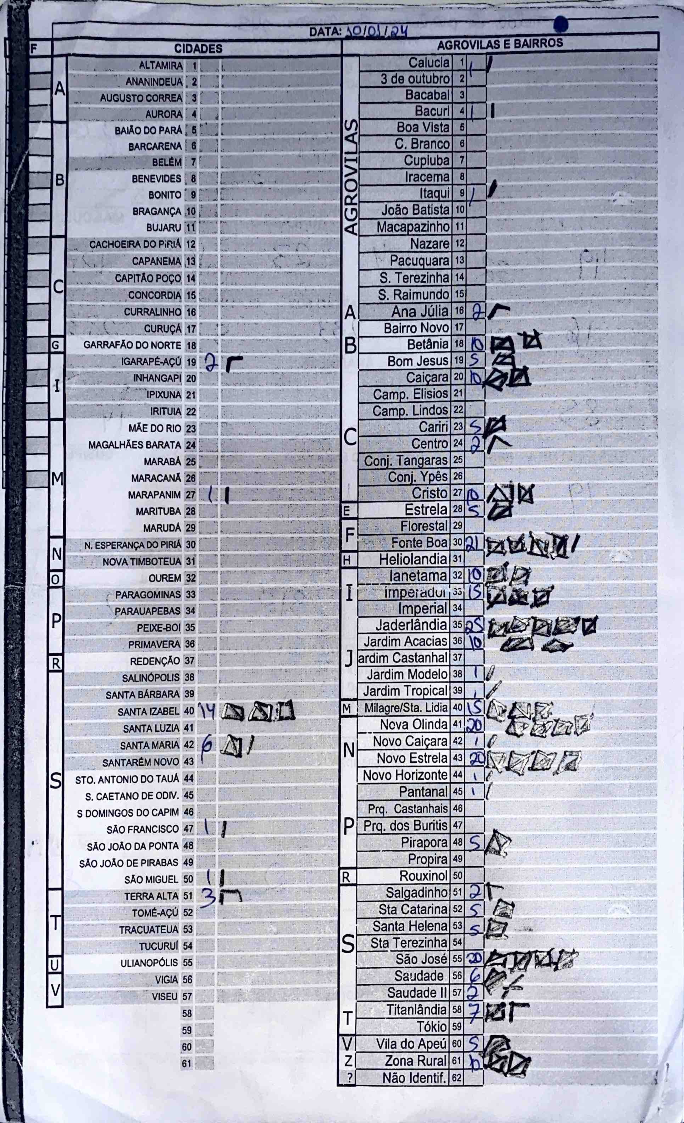 DATA: 10/01/24
F
CIDADES
AGROVILAS E BAIRROS
A
ALTAMIRA 1
ANANINDEUA 2
AUGUSTO CORREA 3
AURORA 4
B
BAIÃO DO PARÁ 5
BARCARENA 6
BELÉM 7
BENEVIDES 8
BONITO 9
BRAGANÇA 10
BUJARU 11
C
CACHOEIRA DO PIRIÁ 12
CAPANEMA 13
CAPITÃO POÇO 14
CONCORDIA 15
CURRALINHO 16
CURUÇÁ 17
G
GARRAFÃO DO NORTE 18
I
IGARAPÉ-AÇÚ 19 2
INHANGAPI 20
IPIXUNA 21
IRITUIA 22
M
MÃE DO RIO 23
MAGALHÃES BARATA 24
MARABÁ 25
MARACANÃ 26
MARAPANIM 27 1
MARITUBA 28
MARUDÁ 29
N
N. ESPERANÇA DO PIRIÁ 30
NOVA TIMBOTEUA 31
O
OUREM 32
P
PARAGOMINAS 33
PARAUAPEBAS 34
PEIXE-BOI 35
PRIMAVERA 36
R
REDENÇÃO 37
S
SALINÓPOLIS 38
SANTA BÁRBARA 39
SANTA IZABEL 40 14
SANTA LUZIA 41
SANTA MARIA 42 6
SANTARÉM NOVO 43
STO. ANTONIO DO TAUÁ 44
S. CAETANO DE ODIV. 45
S DOMINGOS DO CAPIM 46
SÃO FRANCISCO 47 1
SÃO JOÃO DA PONTA 48
SÃO JOÃO DE PIRABAS 49
SÃO MIGUEL 50 1
T
TERRA ALTA 51 3
TOMÉ-AÇÚ 52
TRACUATEUA 53
TUCURUÍ 54
U
ULIANÓPOLIS 55
V
VIGIA 56
VISEU 57
58
59
60
61
AGROVILAS
Calucia 1 1
3 de outubro 2
Bacabal 3
Bacuri 4 1
Boa Vista 5
C. Branco 6
Cupiuba 7
Iracema 8
Itaqui 9 1
João Batista 10
Macapazinho 11
Nazare 12
Pacuquara 13
S. Terezinha 14
S. Raimundo 15
A
Ana Júlia 16 2
Bairro Novo 17
B
Betânia 18 10
Bom Jesus 19 5
C
Caiçara 20 10
Camp. Elisios 21
Camp. Lindos 22
Cariri 23 5
Centro 24 2
Conj. Tangaras 25
Conj. Ypês 26
Cristo 27 10
E
Estrela 28 5
F
Florestal 29
Fonte Boa 30 21
H
Heliolandia 31
I
Ianetama 32 10
Imperador 33 15
Imperial 34
J
Jaderlândia 35 25
Jardim Acacias 36 10
Jardim Castanhal 37
Jardim Modelo 38 1
Jardim Tropical 39 1
M
Milagre/Sta. Lidia 40 15
N
Nova Olinda 41 20
Novo Caiçara 42 1
Novo Estrela 43 20
Novo Horizonte 44 1
P
Pantanal 45 1
Prq. Castanhais 46
Prq. dos Buritis 47
Pirapora 48 5
Propira 49
R
Rouxinol 50
S
Salgadinho 51 2
Sta Catarina 52 5
Santa Helena 53 5
Sta Terezinha 54
São José 55 20
Saudade 56 6
Saudade II 57 2
T
Titanlândia 58 7
Tókio 59
V
Vila do Apeú 60 5
Z
Zona Rural 61
?
Não Identif. 62